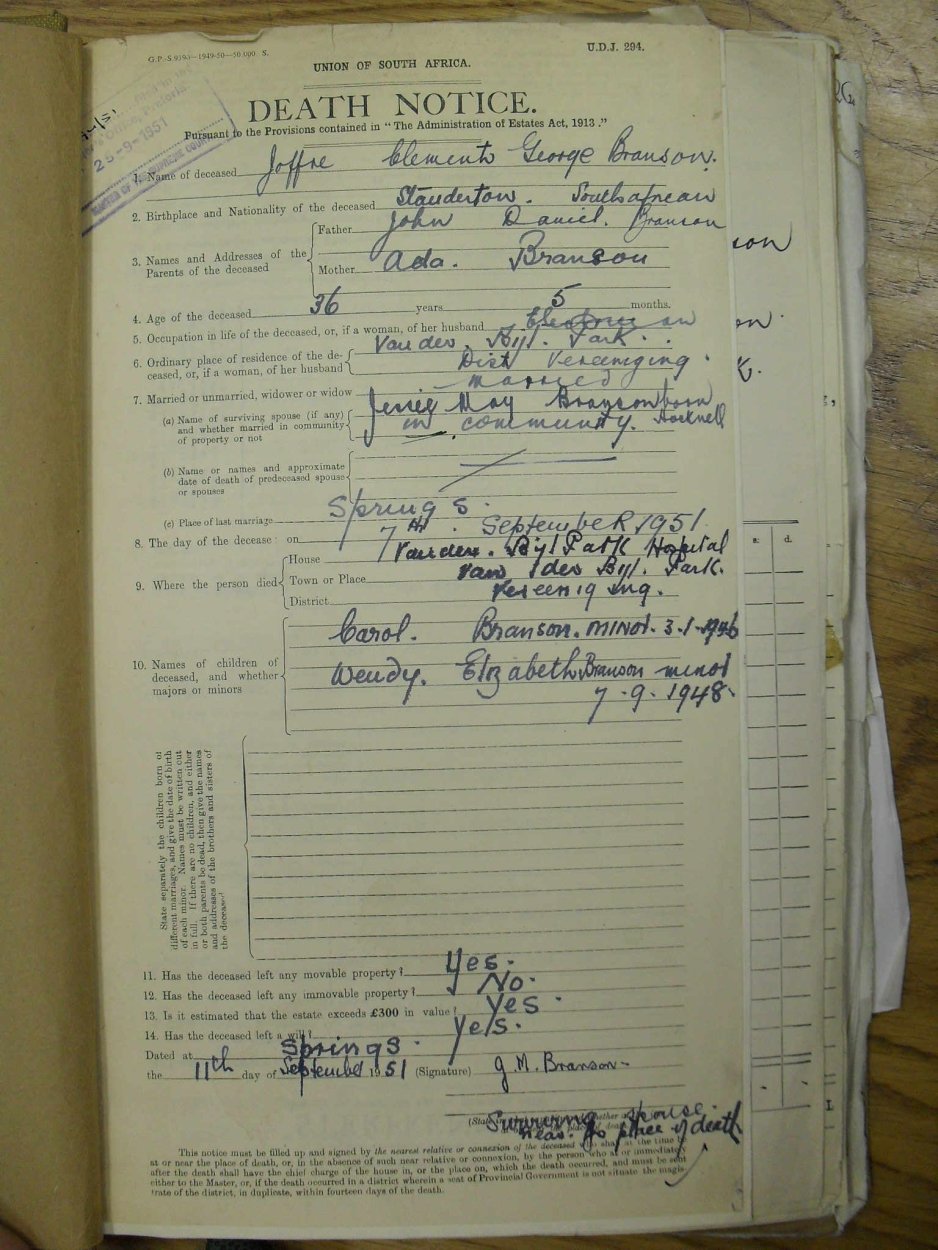 G.P.-S.9393—1949-50—50,000 S.
U.D.J. 294.
UNION OF SOUTH AFRICA.
DEATH NOTICE.
Pursuant to the Provisions contained in "The Administration of Estates Act, 1913."
25-9-1951
1. Name of deceased Joffre Clements George Branson.
2. Birthplace and Nationality of the deceased Standerton. South african
3. Names and Addresses of the Parents of the deceased
Father John Daniel. Branson
Mother Ada. Branson
4. Age of the deceased 36 years 5 months.
5. Occupation in life of the deceased, or, if a woman, of her husband
6. Ordinary place of residence of the deceased, or, if a woman, of her husband
Van der. Bijl. Park.
Dist Vereeniging.
7. Married or unmarried, widower or widow married
(a) Name of surviving spouse (if any) and whether married in community of property or not
Jessie May Branson born
in community. Hocknell
(b) Name or names and approximate date of death of predeceased spouse or spouses
(c) Place of last marriage Springs.
8. The day of the decease on 7th. September 1951
9. Where the person died
House Van der. Bijl Park Hospital
Town or Place Van der Bijl. Park.
District Vereeniging.
10. Names of children of deceased, and whether majors or minors
Carol. Branson. minor. 3-1-1946
Wendy. Elizabeth Branson minor
7-9-1948-
State separately the children born of
different marriages, and give the date of birth
of each minor. Names must be written out
in full. If there are no children, and either
or both parents be dead, then give the names
and addresses of the brothers and sisters of
the deceased
11. Has the deceased left any movable property? Yes.
12. Has the deceased left any immovable property? No.
13. Is it estimated that the estate exceeds £300 in value? Yes.
14. Has the deceased left a will? Yes.
Dated at Springs.
the 11th day of September 1951 (Signature) J. M. Branson-
Surviving spouse.
near. to place of death
This notice must be filled up and signed by the nearest relative or connexion of the deceased who shall at the time be
at or near the place of death, or, in the absence of such near relative or connexion, by the person who at or immediately
after the death shall have the chief charge of the house in, or the place on, which the death occurred, and must be sent
either to the Master, or, if the death occurred in a district wherein a seat of Provincial Government is not situate the magis-
trate of the district, in duplicate, within fourteen days of the death.
s. d.